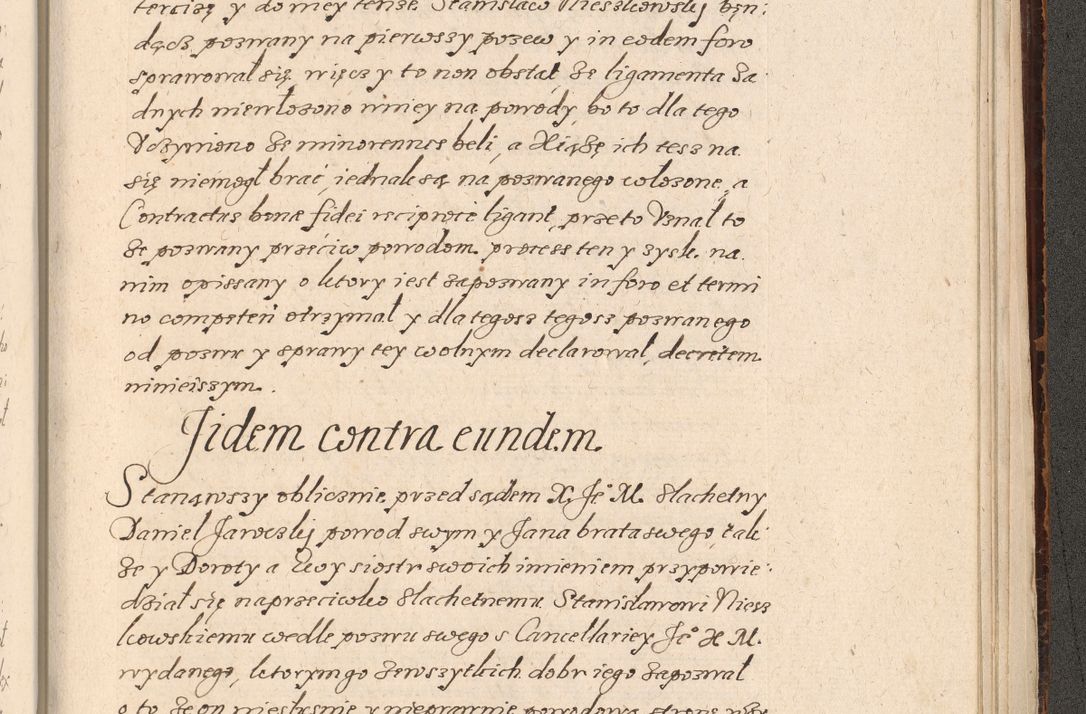 terciią y do niey tensze Stanisław Nieszkowskij bęn:
dącz pozwany na pierwszy pozew y in eodem foro
sprawował się, więcz y to non obstat że ligamenta ża
dnych niewłozono mniey na powody, bo to dla tego
Vczyniono że minorennes beli, a Xiążę ich tesz na
się niemogł brać, iednak są na pozwanego włozone, a
Contractus bonæ fidei reciprocè ligant, przeto Vznał to
że pozwany przećiw powodom process ten y zysk na
nim opissany o ktory iest zapozwany in foro et termi
no competeñ otrzymał y dla tegosz tegosz pozwanego
od pozwu y sprawy tey wolnym declarował, decretem
ninieiszym.
Jidem contra eundem
Stanąwszy oblicznie przed sądem X. Je° M. Slachetny
Daniel Jaroczkij powod swym y Jana brata swego, tak
że y Doroty a Ewy siostr swoich imieniem przypowie:
dział się naprzeciwko Slachetnemu Stanisławowi Niesz
kowskiemu wedle pozwu swego s Cancellariey Je° X M.
wydanego, ktorym go zewszytkich dobr iego zapozwał
o to że on niesłusznie y nieprawnie powodową stronę